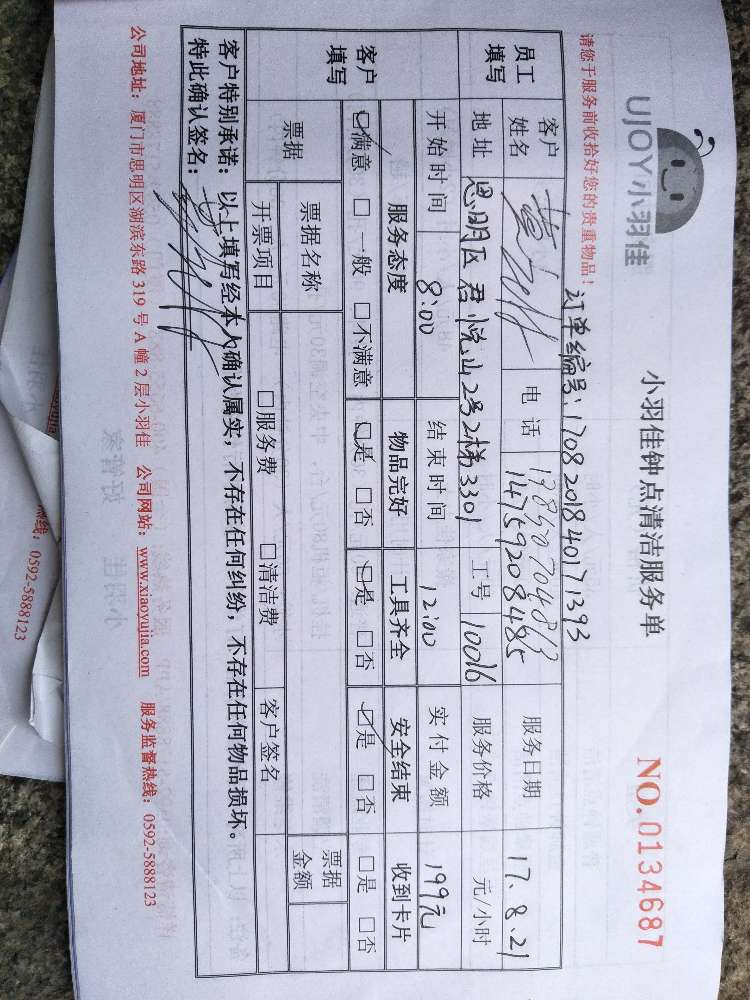 UJOY小羽佳
小羽佳钟点清洁服务单
NO.0134687
请您于服务前收拾好您的贵重物品!
订单编号:1708201840171393
员工填写 客户姓名 电话 14759208485 服务日期 17.8.21
地址 思明区君悦山2号2梯3301 工号 10016 服务价格 元/小时
开始时间 8:00 结束时间 12:00 实付金额 199元
客户填写 服务态度 物品完好 工具齐全 安全结束 收到卡片
☑满意 □一般 □不满意 ☑是 □否 ☑是 □否 ☑是 □否 □是 □否
票据 票据名称 票据金额
开票项目 □服务费 □清洁费 客户签名
客户特别承诺:以上填写经本人确认属实,不存在任何纠纷,不存在任何物品损坏。
特此确认签名:
公司地址:厦门市思明区湖滨东路 319 号 A 幢 2 层小羽佳 公司网站:www.xiaoyujia.com 服务监督热线:0592-5888123
热线:0592-5888123